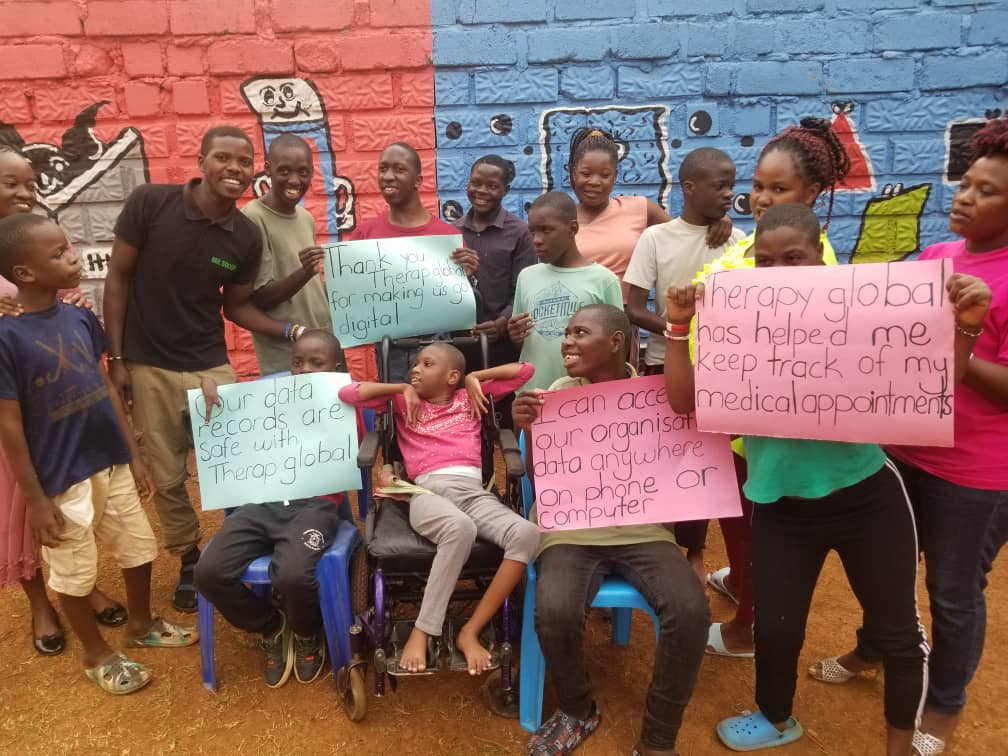 Thank you
Therap global
for making us go
digital
Our data
records are
Safe with
Therap global
I can
our
data anywhere
on phone or
computer
Therapy global
has helped me
keep track of my
medical appointments